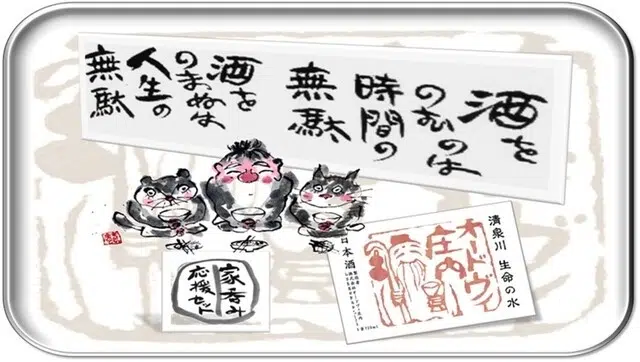 酒を
のむのは
時間の
無駄
酒を
のまぬは
人生の
無駄
家呑み
応援セット
清泉川 生命の水
オードヴィ
庄内
日本酒